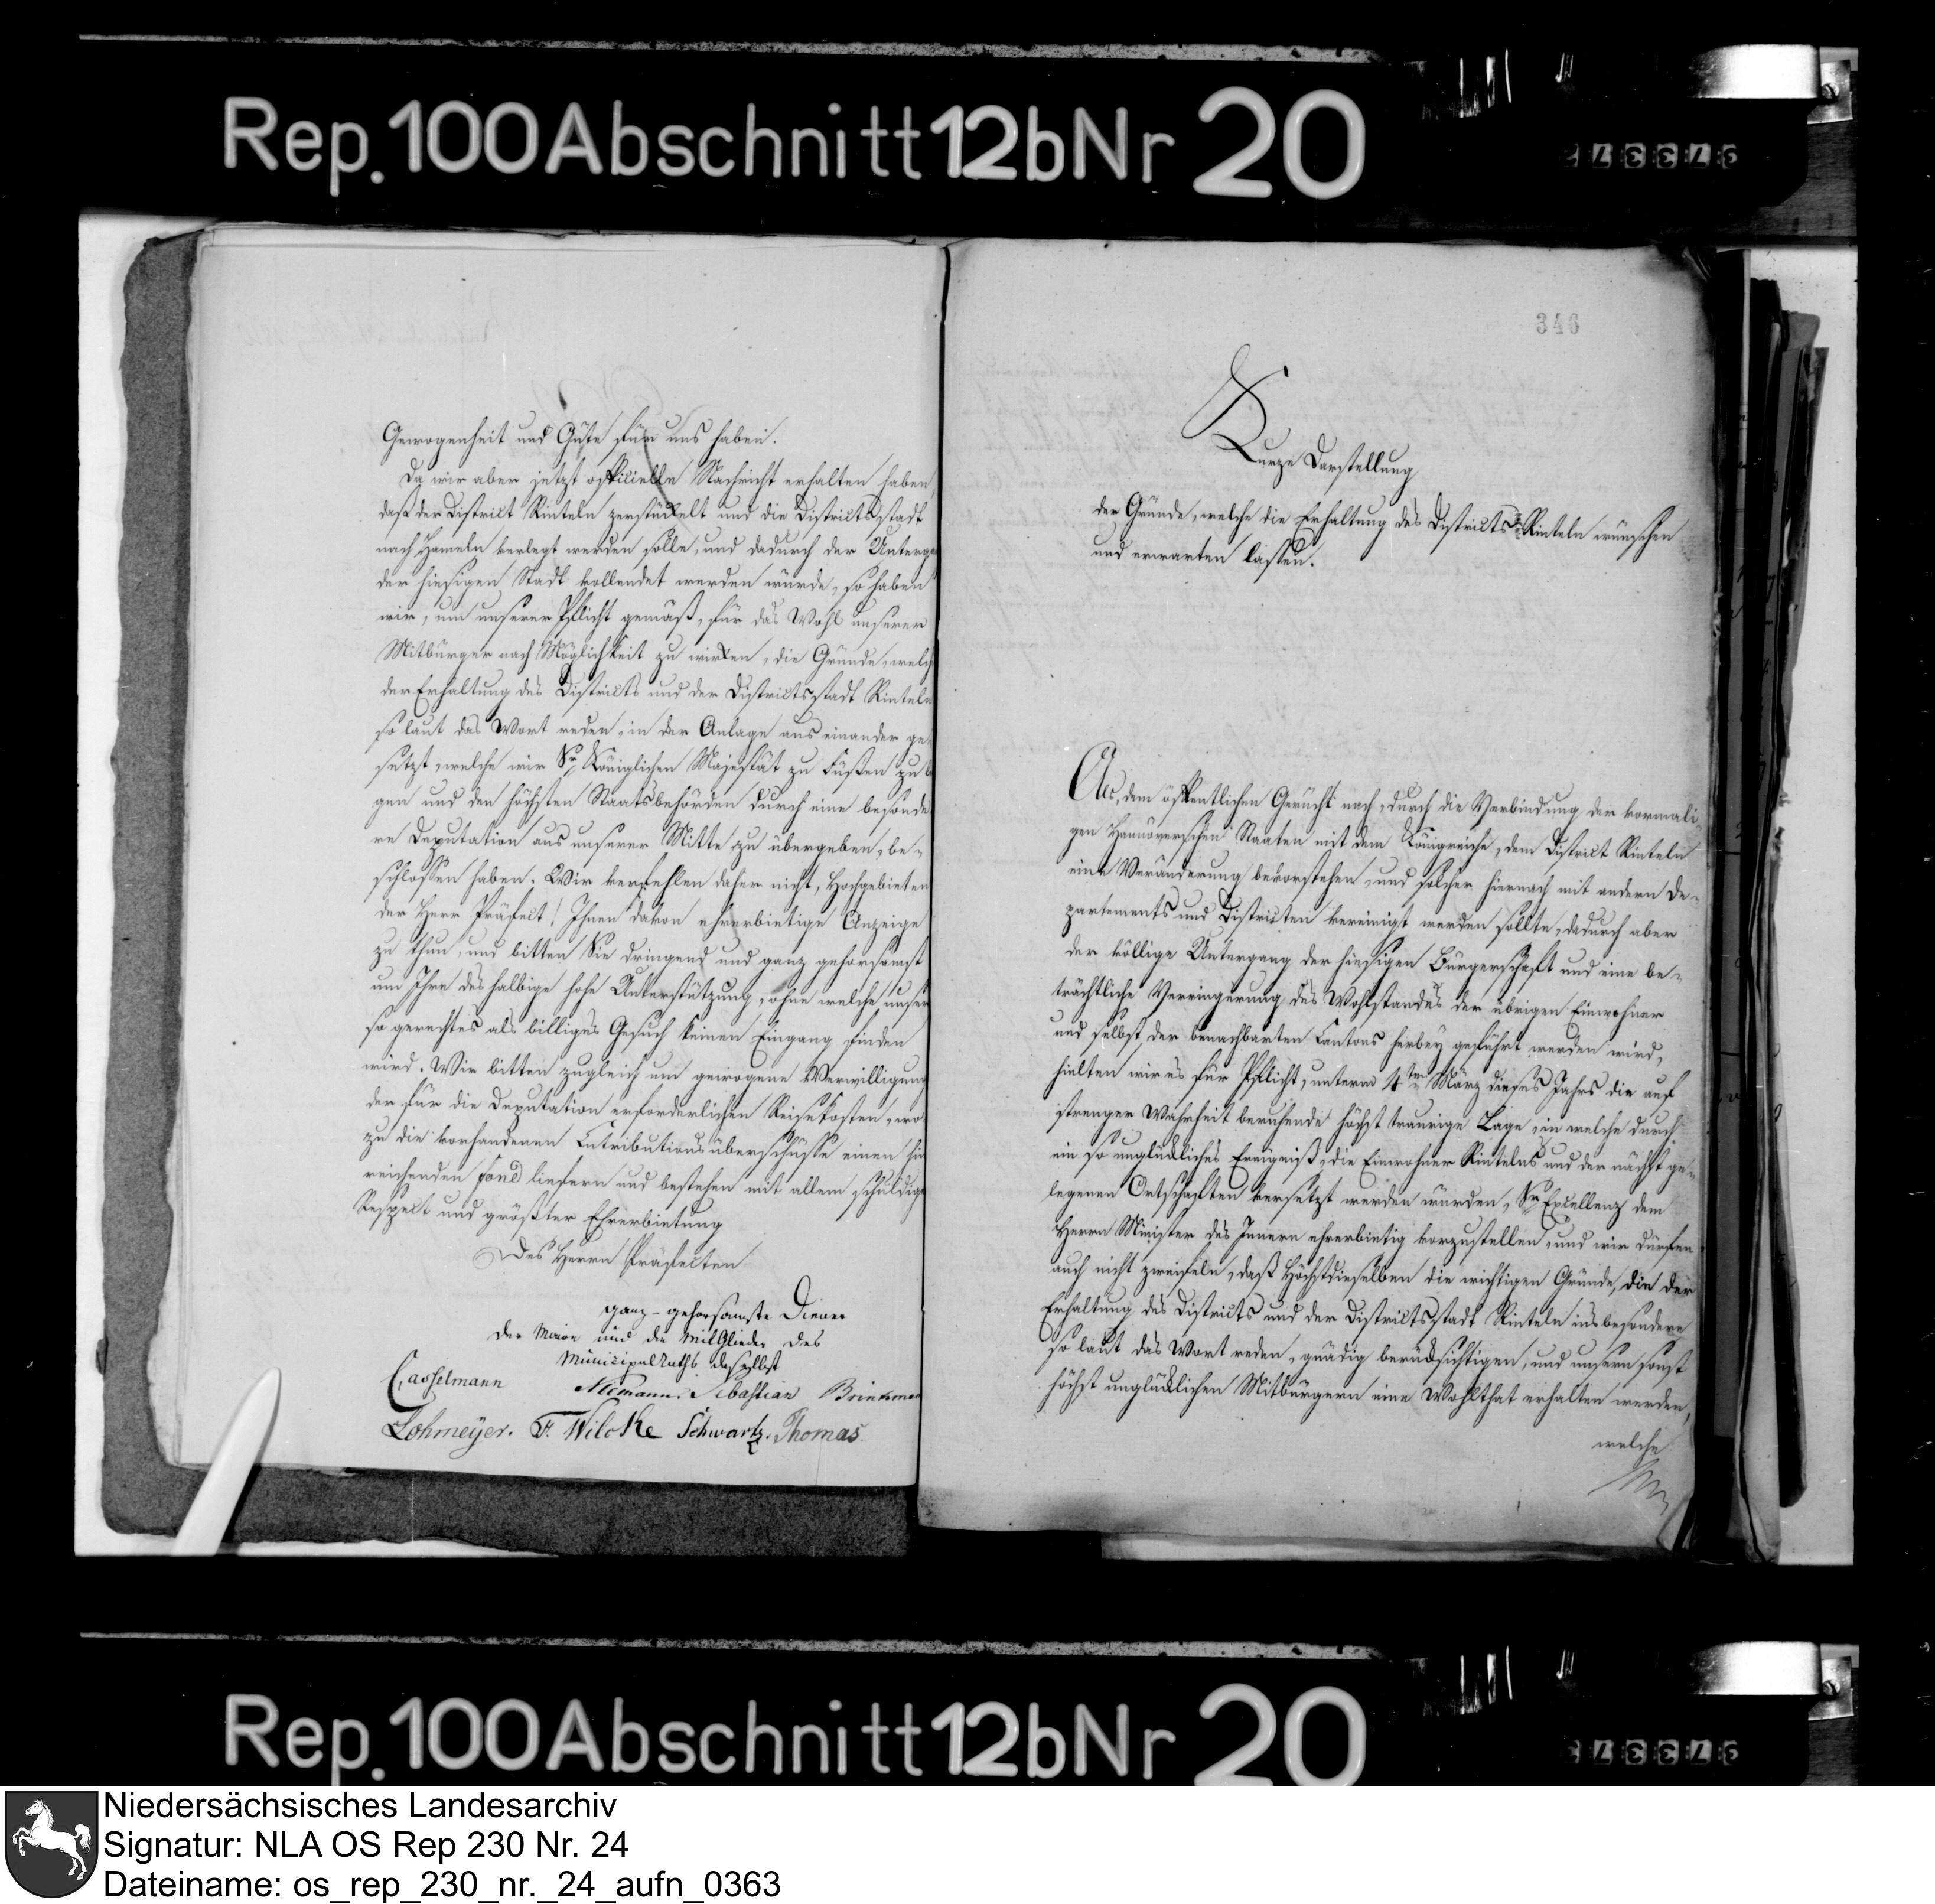 Rep. 100 Abschnitt 12b Nr 20
Gewogenheit und Güte für uns haben.
Da wir aber jetzt officielle Nachricht erhalten haben,
daß der District Rinteln zerstückelt und die Districtsstadt
nach Hameln verlegt werden solle, und dadurch der Unterga
der hiesigen Stadt vollendet werden würde, so haben
wir, um unserer Pflicht gemäß, für das Wohl unserer
Mitbürger nach Möglichkeit zu wirken, die Gründe, welch
der Erhaltung des Districts und der Districtsstadt Rinteln
so laut das Wort reden, in der Anlage aus einander ge-
setzt, welche wir Sr Königlichen Majestät zu Füßen zu
gen und den höchsten Staatsbehörden durch eine besonde
re Deputation aus unserer Mitte zu übergeben, be-
schlossen haben. Wir verfehlen daher nicht, Hochgebieten
der Herr Präfect! Ihnen davon ehrerbietige Anzeige
zu thun, und bitten Sie dringend und ganz gehorsamst
um Ihre deshalbige hohe Unterstützung, ohne welche unser
so gerechtes als billiges Gesuch keinen Eingang finden
wird. Wir bitten zugleich um gewogene Verwilligung
der für die Deputation erforderlichen Reisekosten, wo
zu die vorhandenen Contributionsüberschüsse einen hin
reichenden Fond liefern und bestehen mit allem schuldig
Respect und größter Ehrerbietung
Des Herrn Präfecten
ganz-gehorsamste Diener
der Maire und die Mitglieder des
Municipalraths daselbst
Casselmann Niemann. Sebastian Brinkman
Lohmeyer. F. Wilcke Schwartz. Thomas.
346
Kurze Darstellung
der Gründe, welche die Erhaltung des Districts Rinteln wünschen
und erwarten lassen.
Als, dem öffentlichen Gerücht nach, durch die Verbindung der vormali-
gen Hannöverschen Staaten mit dem Königreiche, dem District Rinteln
eine Veränderung bevorstehen, und solcher hiernach mit andern De-
partements und Districten vereinigt werden sollte, dadurch aber
der völlige Untergang der hiesigen Bürgerschaft und eine be-
trächtliche Verringerung des Wohlstandes der übrigen Einwohner
und selbst der benachbarten Cantons herbey geführt werden wird,
hielten wir es für Pflicht, unterm 4ten März dieses Jahrs die auf
strenger Wahrheit beruhende höchst traurige Lage, in welche durch
ein so unglückliches Ereigniß, die Einwohner Rintelns und der nächst ge-
legenen Ortschaften versetzt werden würden, Sr Excellenz dem
Herrn Minister des Innern ehrerbietig vorzustellen, und wir dürfen
auch nicht zweifeln, daß Höchstdieselben die wichtigen Gründe, die der
Erhaltung des Districts und der Districtsstadt Rinteln insbesondere
so laut das Wort reden, gnädig berücksichtigen, und unsern sonst
höchst unglücklichen Mitbürgern eine Wohlthat erhalten werden,
welche
Rep. 100 Abschnitt 12b Nr 20
Niedersächsisches Landesarchiv
Signatur: NLA OS Rep 230 Nr. 24
Dateiname: os_rep_230_nr._24_aufn_0363